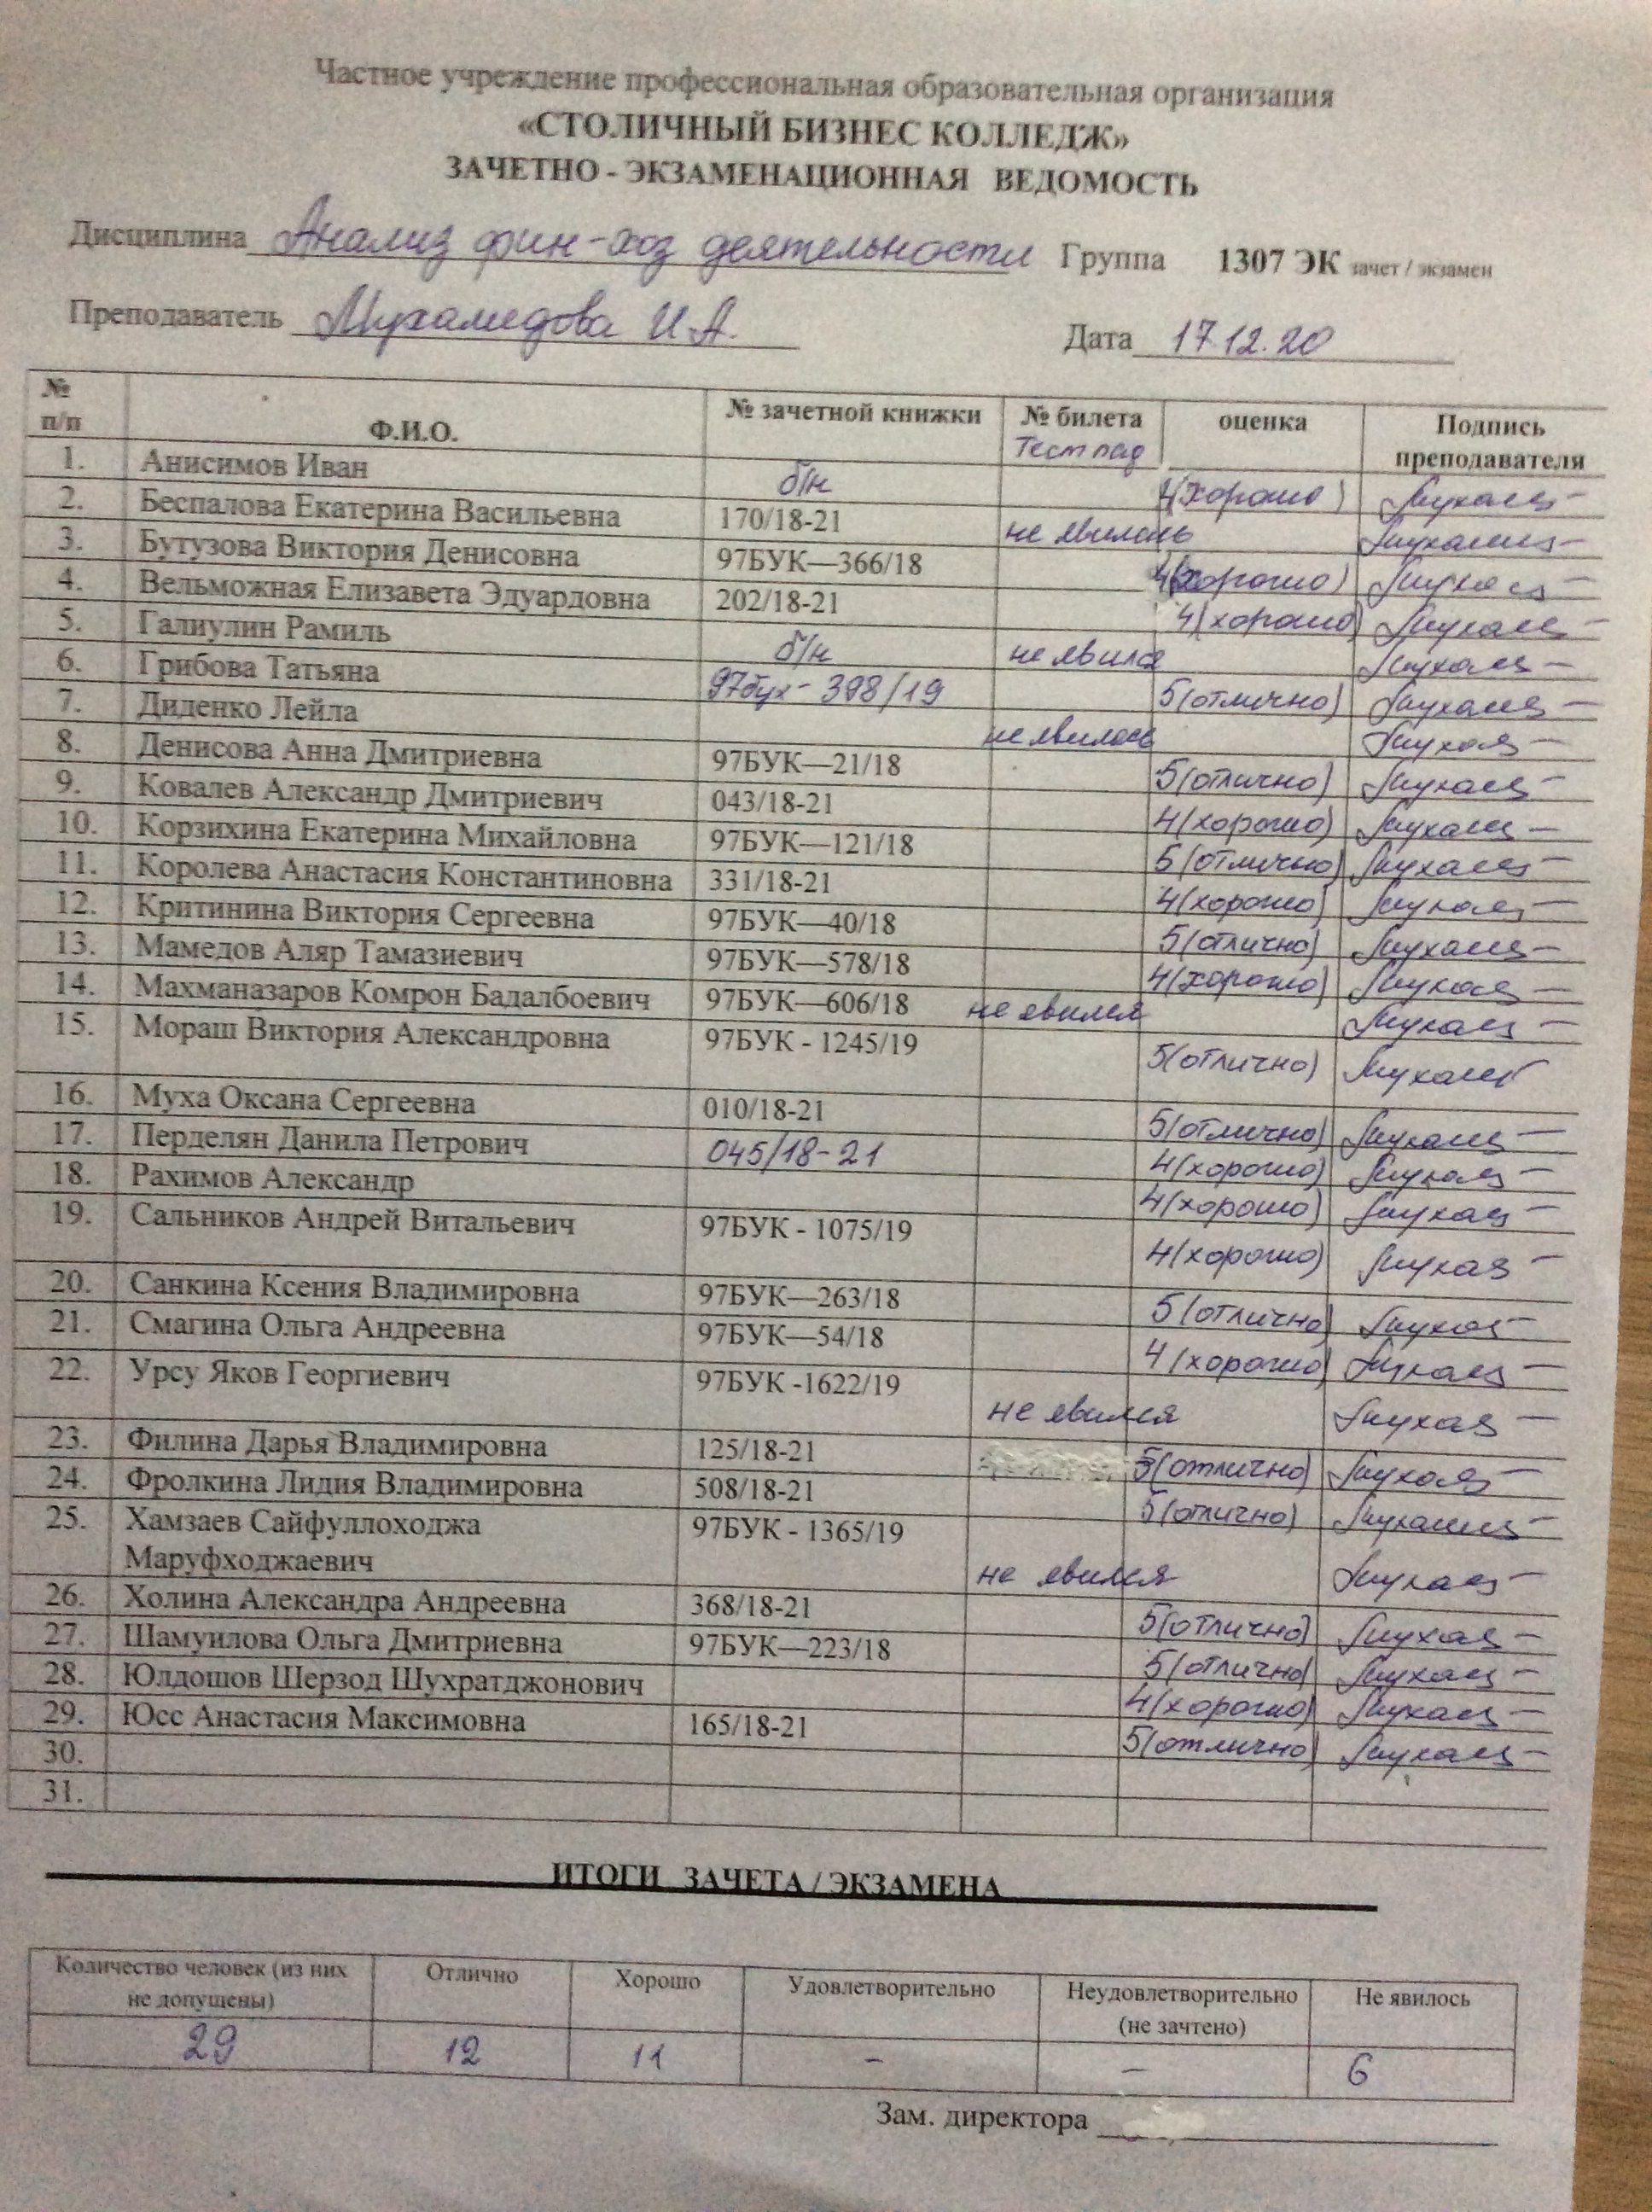 Частное учреждение профессиональная образовательная организация
«СТОЛИЧНЫЙ БИЗНЕС КОЛЛЕДЖ»
ЗАЧЕТНО - ЭКЗАМЕНАЦИОННАЯ ВЕДОМОСТЬ
Дисциплина Анализ фин-хоз деятельности Группа 1307 ЭК зачет / экзамен
Преподаватель Мухамедова И.А. Дата 17.12.20
№ п/п Ф.И.О. № зачетной книжки № билета Тест пад оценка Подпись преподавателя
1. Анисимов Иван б/н 4(хорошо)
2. Беспалова Екатерина Васильевна 170/18-21 не явилась
3. Бутузова Виктория Денисовна 97БУК—366/18 4(хорошо)
4. Вельможная Елизавета Эдуардовна 202/18-21 4(хорошо)
5. Галиулин Рамиль б/н не явился
6. Грибова Татьяна 97бух- 398/19 5(отлично)
7. Диденко Лейла не явилась
8. Денисова Анна Дмитриевна 97БУК—21/18 5(отлично)
9. Ковалев Александр Дмитриевич 043/18-21 4(хорошо)
10. Корзихина Екатерина Михайловна 97БУК—121/18 5(отлично)
11. Королева Анастасия Константиновна 331/18-21 4(хорошо)
12. Критинина Виктория Сергеевна 97БУК—40/18 5(отлично)
13. Мамедов Аляр Тамазиевич 97БУК—578/18 4(хорошо)
14. Махманазаров Комрон Бадалбоевич 97БУК—606/18 не явился
15. Мораш Виктория Александровна 97БУК - 1245/19 5(отлично)
16. Муха Оксана Сергеевна 010/18-21 5(отлично)
17. Перделян Данила Петрович 045/18-21 4(хорошо)
18. Рахимов Александр 4(хорошо)
19. Сальников Андрей Витальевич 97БУК - 1075/19 4(хорошо)
20. Санкина Ксения Владимировна 97БУК—263/18 5(отлично)
21. Смагина Ольга Андреевна 97БУК—54/18 4(хорошо)
22. Урсу Яков Георгиевич 97БУК -1622/19 не явился
23. Филина Дарья Владимировна 125/18-21 5(отлично)
24. Фролкина Лидия Владимировна 508/18-21 5(отлично)
25. Хамзаев Сайфуллоходжа 97БУК - 1365/19
Маруфходжаевич не явился
26. Холина Александра Андреевна 368/18-21 5(отлично)
27. Шамуилова Ольга Дмитриевна 97БУК—223/18 5(отлично)
28. Юлдошов Шерзод Шухратджонович 4(хорошо)
29. Юсс Анастасия Максимовна 165/18-21 5(отлично)
30.
31.
ИТОГИ ЗАЧЕТА / ЭКЗАМЕНА
Количество человек (из них не допущены) Отлично Хорошо Удовлетворительно Неудовлетворительно (не зачтено) Не явилось
29 12 11 - - 6
Зам. директора